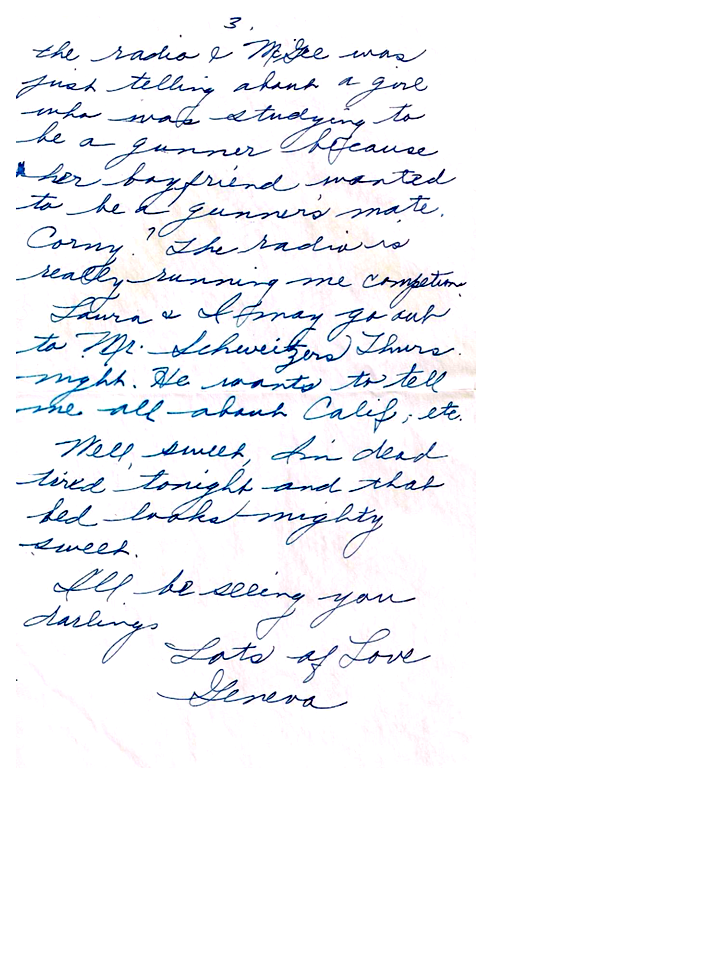 3.
the radio & McGee was
just telling about a girl
who was studying to
be a gunner because
her boyfriend wanted
to be a gunner's mate.
Corny? The radio is
really running me competion
Laura & I may go out
to Mr. Schweitzers Thurs.
night. He wants to tell
me all about Calif, etc.
Well, sweet, I'm dead
tired tonight and that
bed looks mighty
sweet.
I'll be seeing you
darlings
Lots of Love
Geneva